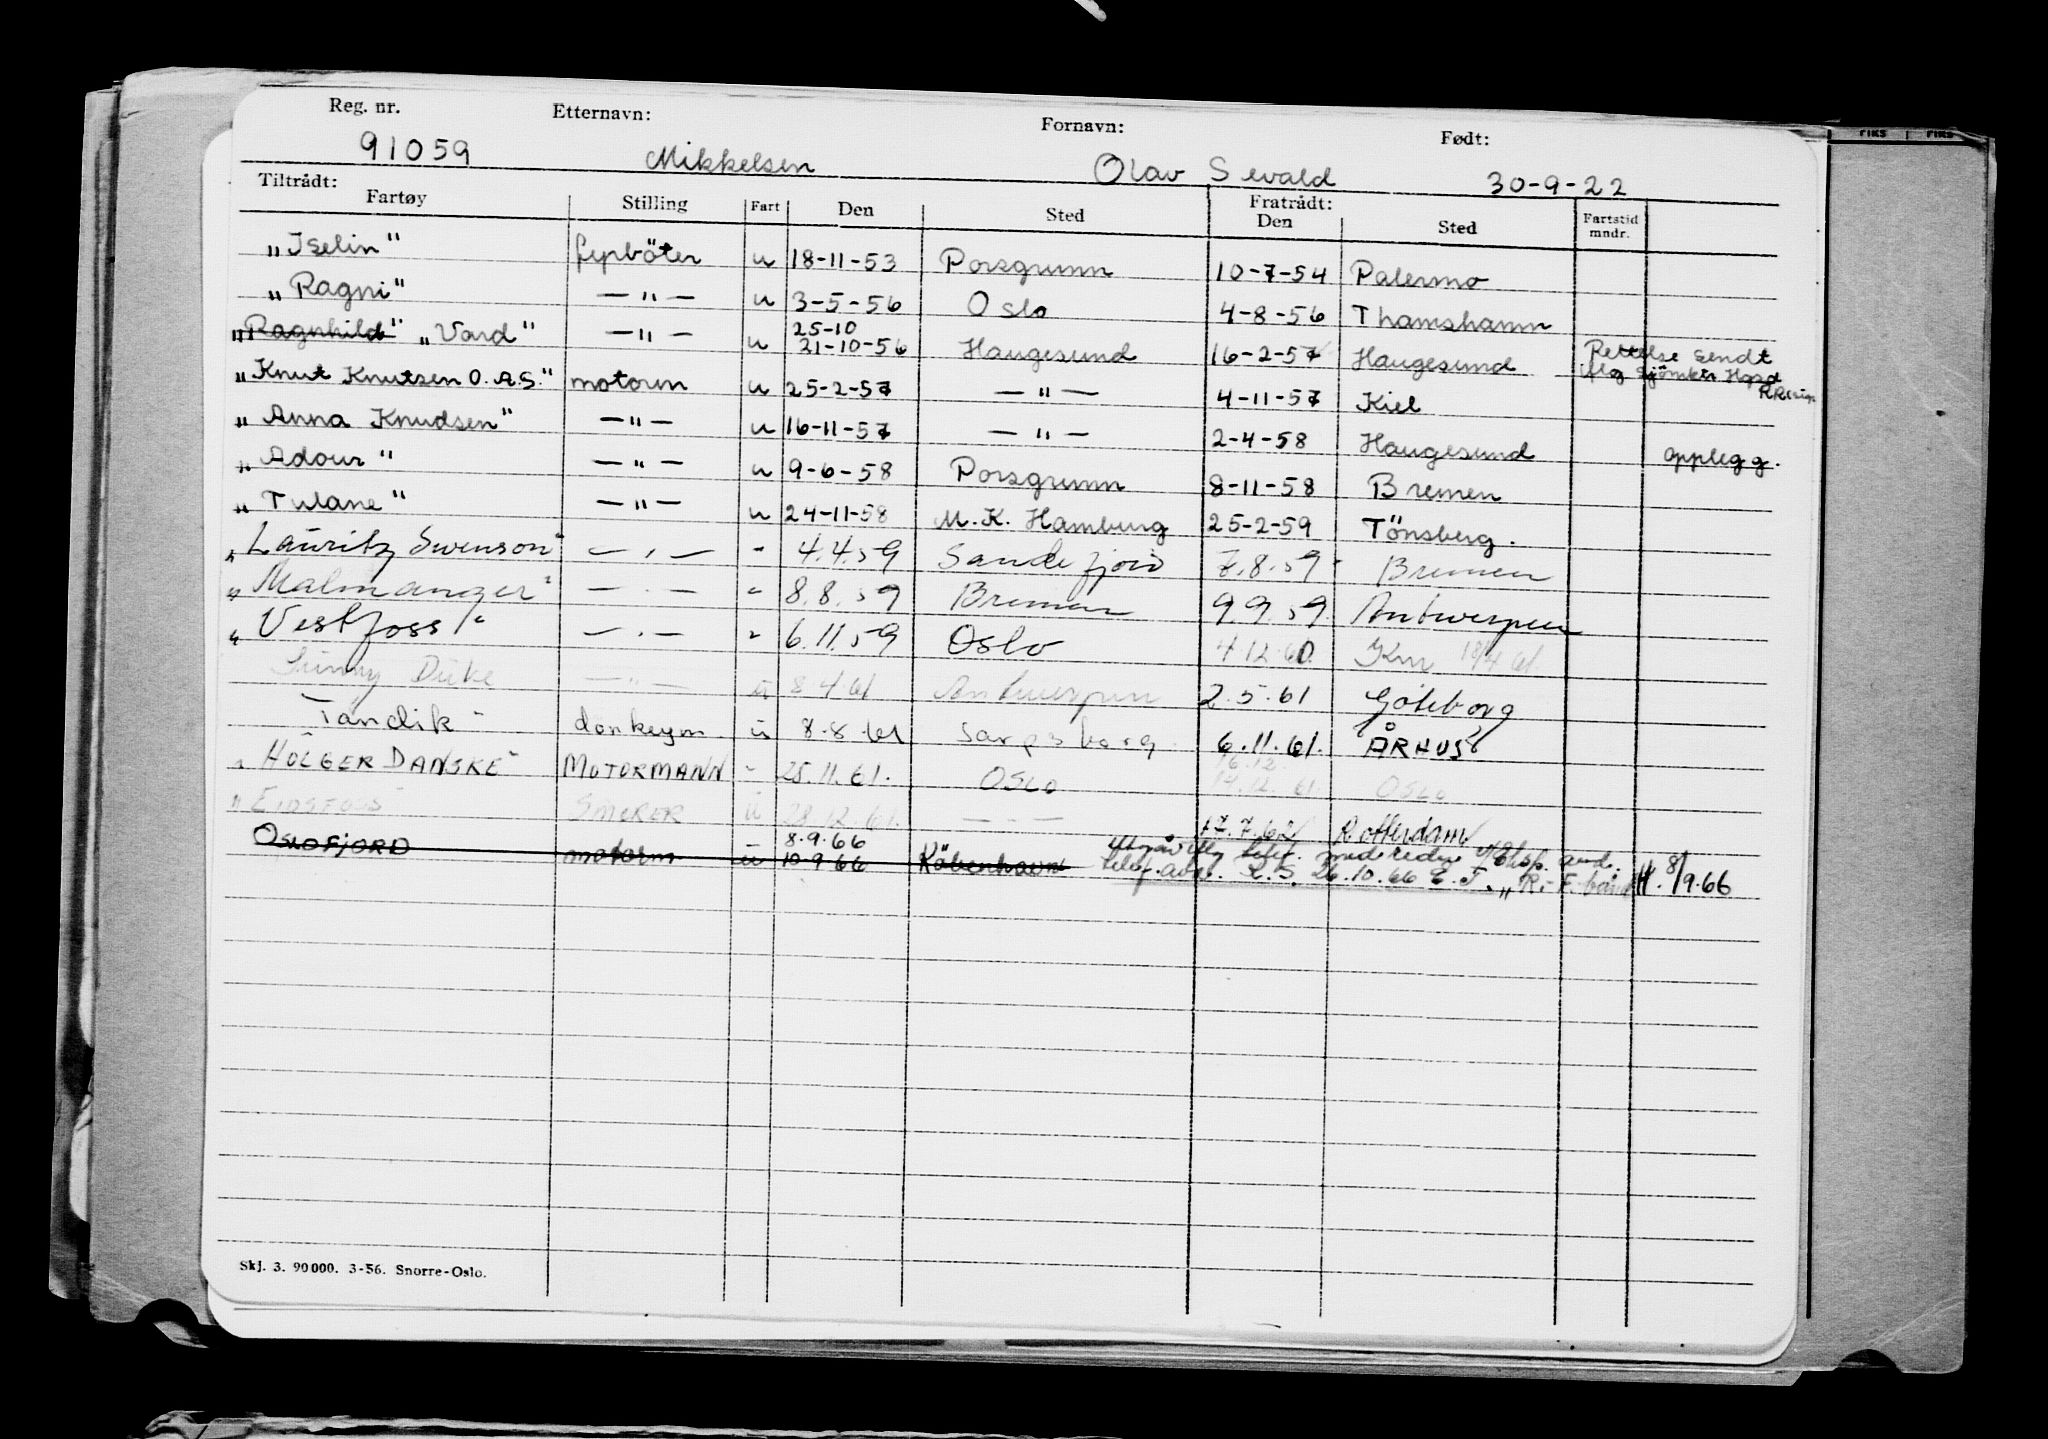 FIKS FIKS
Reg. nr. Etternavn: Fornavn: Født:
91059 Mikkelsen Olav Sevald 30-9-22
Tiltrådt: Fratrådt:
Fartøy Stilling Fart Den Sted Den Sted Fartstid mndr.
"Iselin" fyrböter u 18-11-53 Porsgrunn 10-7-54 Palermo
"Ragni" — " — u 3-5-56 Oslo 4-8-56 Thamshamn
25-10
"Ragnhild" "Vard" — " — u 21-10-56 Haugesund 16-2-57 Haugesund Rettelse sendt
"Knut Knutsen O.A.S." motorm u 25-2-57 — " — 4-11-57 Kiel
"Anna Knudsen" — " — u 16-11-57 — " — 2-4-58 Haugesund opplegg.
"Adour" — " — u 9-6-58 Porsgrunn 8-11-58 Bremen
"Tulane" — " — u 24-11-58 M.K. Hamburg 25-2-59 Tönsberg.
"Lauritz Swenson" — " — " 4.4.59 Sandefjord 7.8.59 Bremen
"Malmanger" — " — " 8.8.59 Bremen 9.9.59 Antwerpen
"Vestfoss" — " — " 6.11.59 Oslo 4.12.60 Krs 18/4 61.
Sunny Duke — " — u 8.4.61 Antwerpen 2.5.61 Göteborg
Tandik" donkeym. u 8.8.61 Sarpsborg. 6.11.61. ÅRHUS
16.12.
"HOLGER DANSKE" MOTORMANN " 25.11.61. OSLO 14.12.61. OSLO
"EIDSFOSS" SMØRER u 28.12.61. — " — 17.7.62 Rotterdam
8.9.66
OSLOFJORD motorm u 10.9.66 Köbenhavn 26.10.66 8/9.66
Skj. 3. 90000. 3-56. Snorre-Oslo.